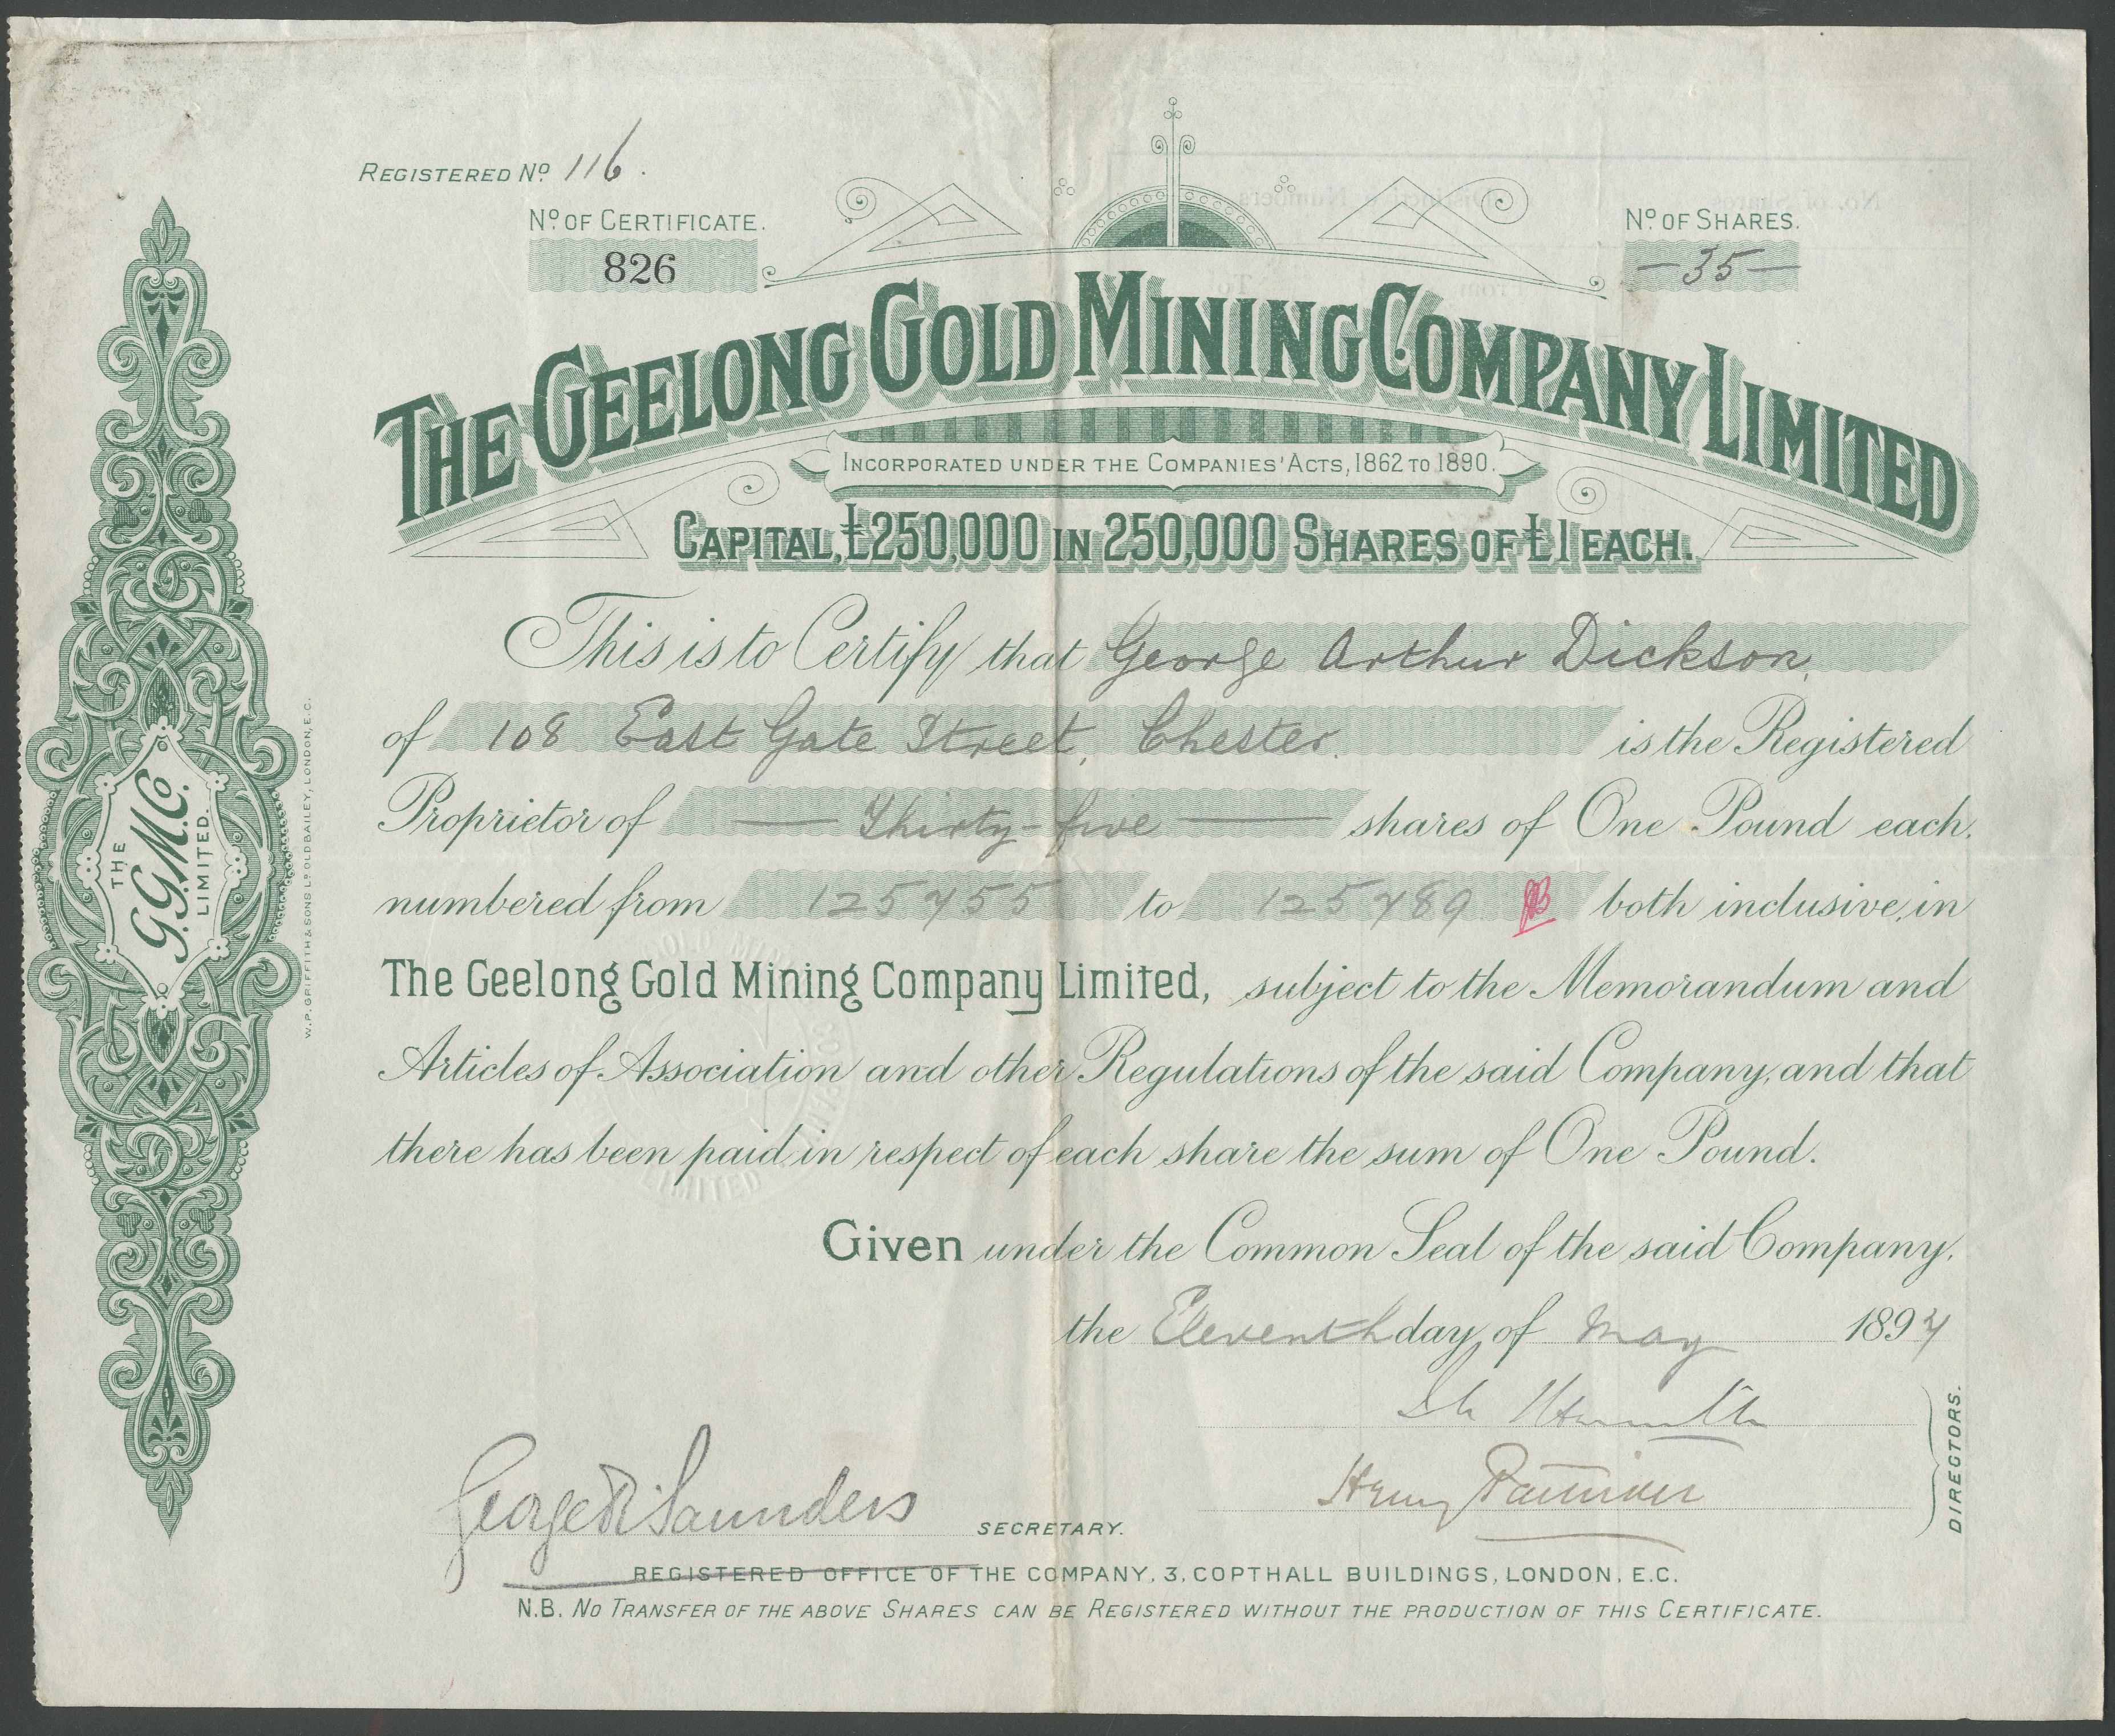 REGISTERED No. 116.
No. OF CERTIFICATE.
826
No. OF SHARES.
— 35 —
THE GEELONG GOLD MINING COMPANY LIMITED
INCORPORATED UNDER THE COMPANIES' ACTS, 1862 TO 1890.
CAPITAL, £250,000 IN 250,000 SHARES OF £1 EACH.
This is to Certify that George Arthur Dickson,
of 108 East Gate Street, Chester. is the Registered
Proprietor of — Thirty-five — shares of One Pound each,
numbered from 125755 to 125789 both inclusive, in
The Geelong Gold Mining Company Limited, subject to the Memorandum and
Articles of Association and other Regulations of the said Company, and that
there has been paid in respect of each share the sum of One Pound.
Given under the Common Seal of the said Company,
the Eleventh day of May 1897
Henry
DIRECTORS.
George R Saunders SECRETARY.
REGISTERED OFFICE OF THE COMPANY, 3, COPTHALL BUILDINGS, LONDON, E.C.
N.B. NO TRANSFER OF THE ABOVE SHARES CAN BE REGISTERED WITHOUT THE PRODUCTION OF THIS CERTIFICATE.
THE
G.G.M.Co.
LIMITED.
W.P. GRIFFITH & SONS Ld. OLD BAILEY, LONDON, E.C.